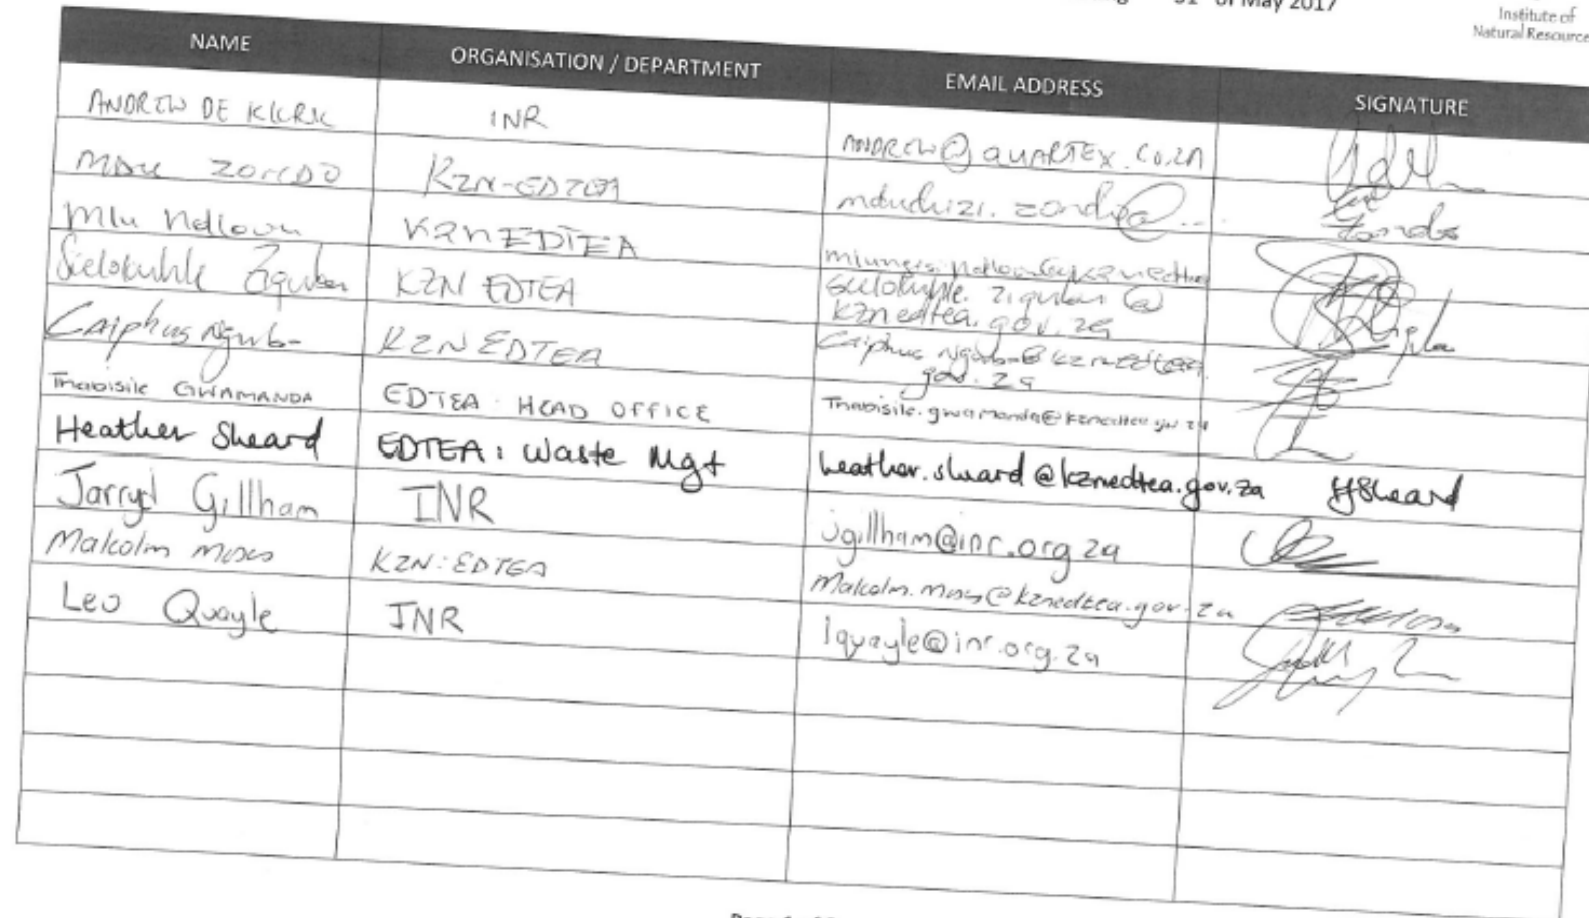 31 of May 2017
Institute of
Natural Resource
NAME ORGANISATION / DEPARTMENT EMAIL ADDRESS SIGNATURE
ANDREW DE KLERK INR ANDREW@QUARTEX.CO.ZA
ZONDO KZN-EDTEA mduduzi.zondo@...
Mlu Ndlovu KZNEDTEA
KZN EDTEA
kznedtea.gov.za
Caiphus KZN EDTEA
gov.za
Thabisile GWAMANDA EDTEA: HEAD OFFICE Thabisile.gwamanda@kznedtea.gov.za
Heather Sheard EDTEA: Waste Mgt heather.sheard@kznedtea.gov.za HSheard
Jarryd Gillham INR jgillham@inr.org.za
Malcolm Moses KZN:EDTEA Malcolm.moses@kznedtea.gov.za
Leo Quayle INR lquayle@inr.org.za